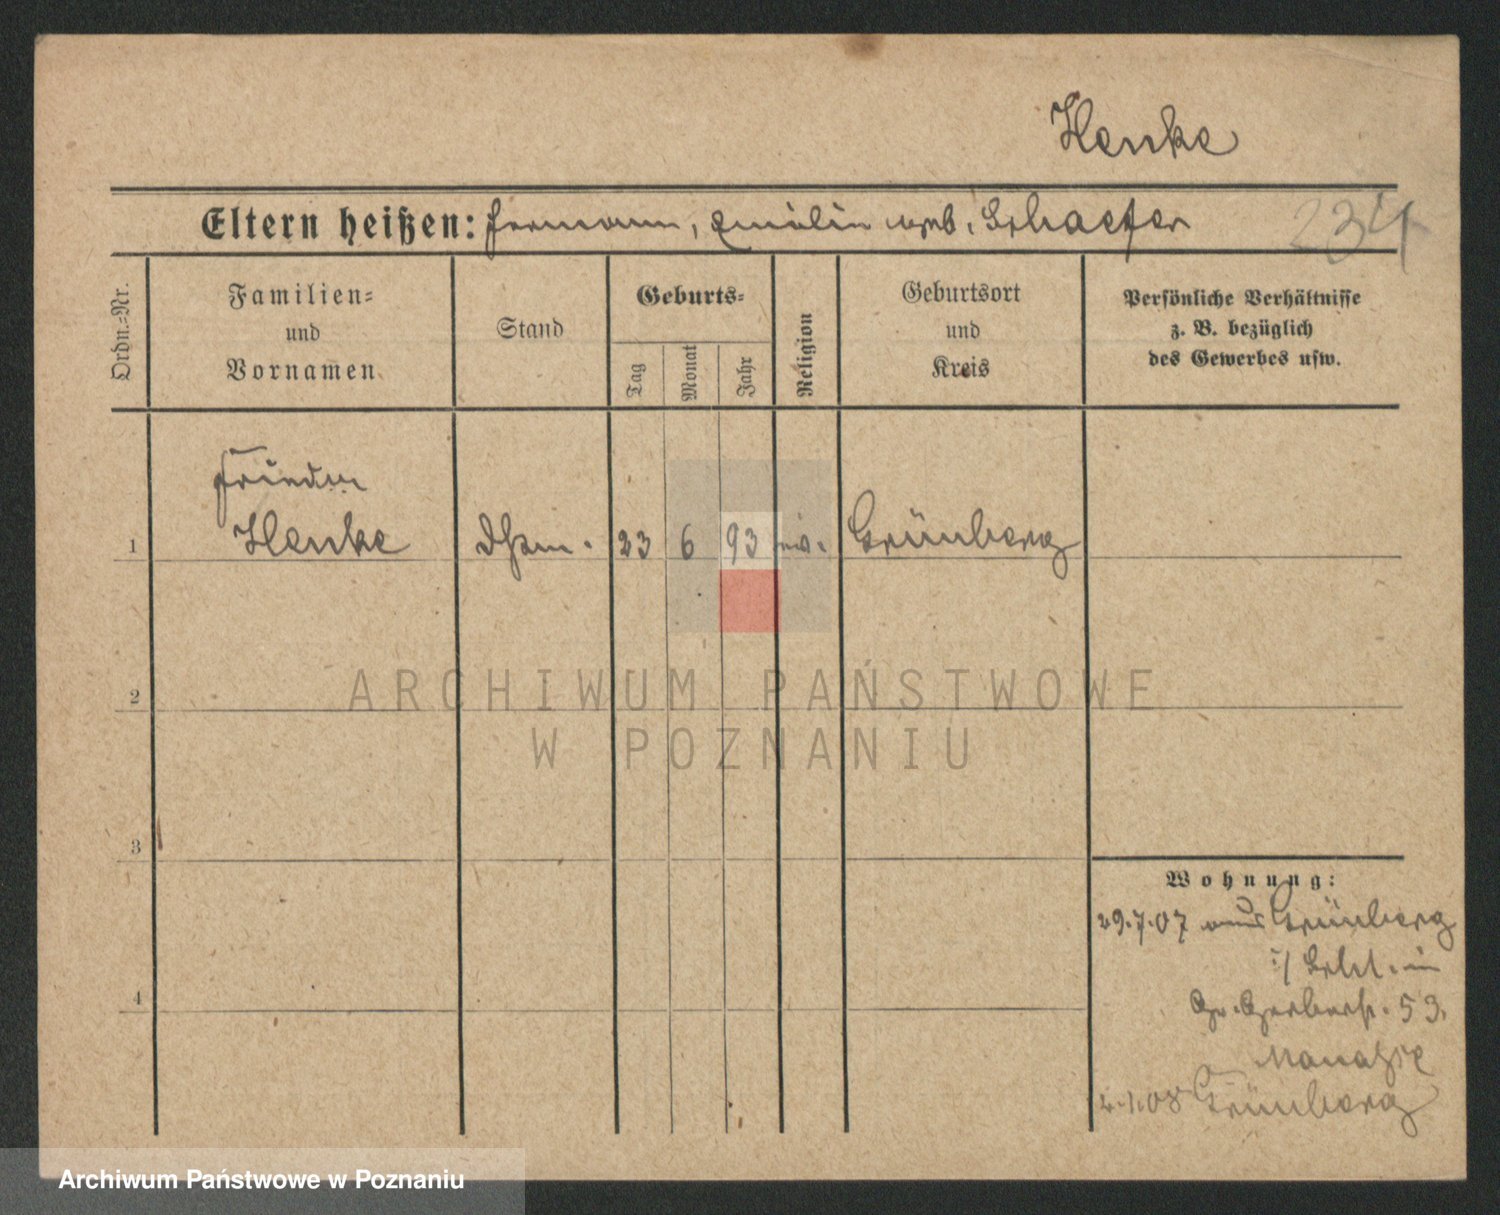 Henke
Eltern heißen: Hermann, Emilie geb. Schaefer
234
Ordn.-Nr.
Familien-
und
Vornamen
Stand
Geburts-
Tag
Monat
Jahr
Religion
Geburtsort
und
Kreis
Persönliche Verhältnisse
z. B. bezüglich
des Gewerbes usw.
Frieda
1 Henke 23 6 93 ev. Grünberg
2
ARCHIWUM PAŃSTWOWE
W POZNANIU
3
Wohnung:
29.7.07 aus Grünberg
i/ Schl. in
4
Gr. Gerberst. 53.
2.1.08 Grünberg
Archiwum Państwowe w Poznaniu